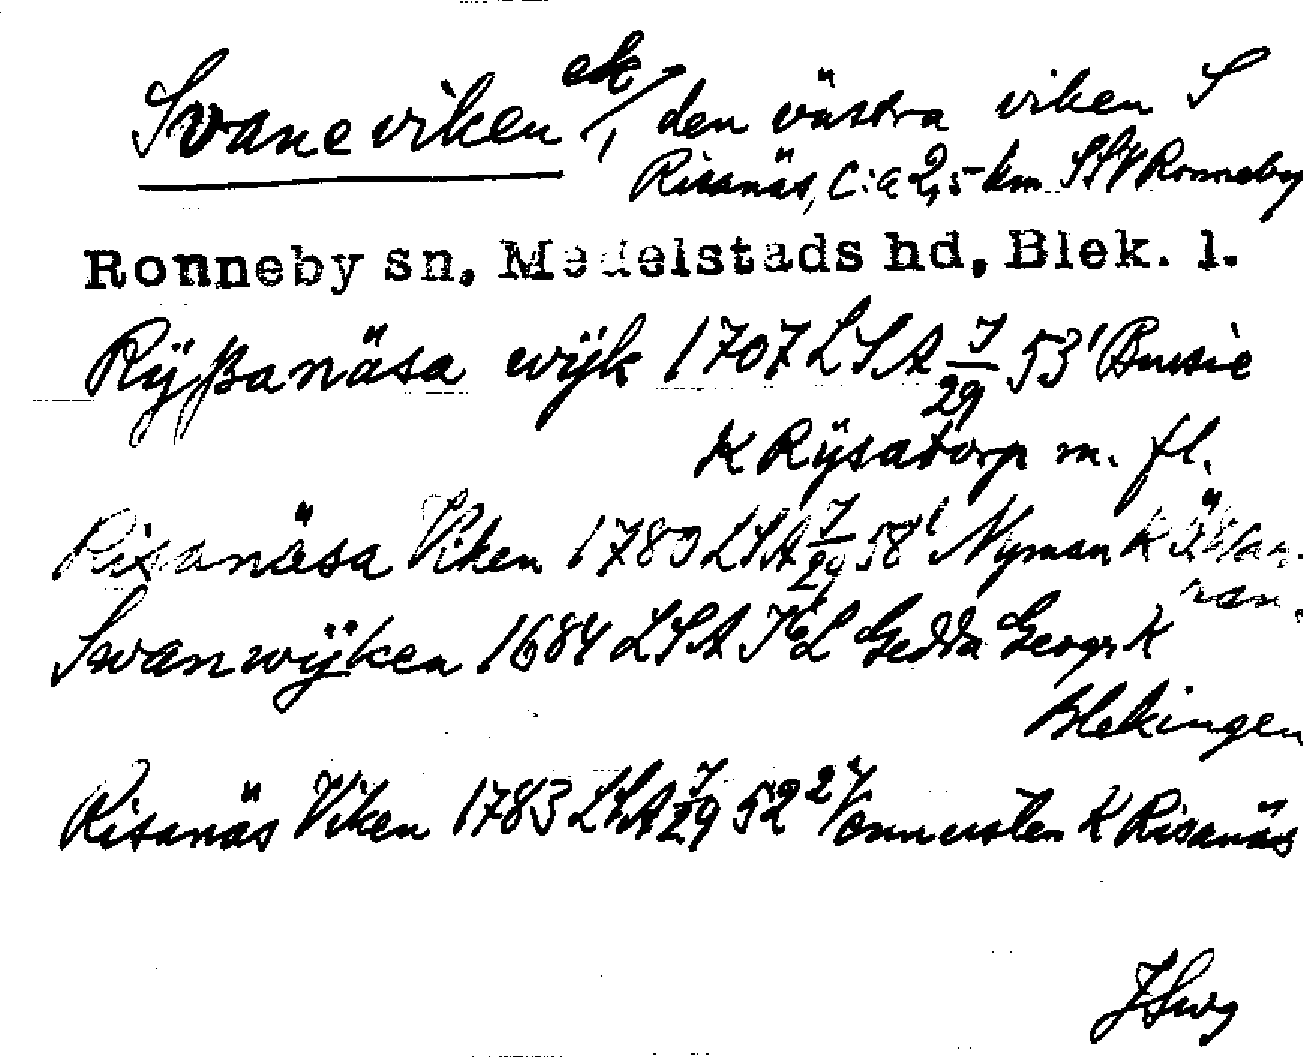 Svaneviken ek /, den västra viken S
Risanäs, c:a 2,5 km SSV Ronneby
Ronneby sn, Medelstads hd, Blek. l.
Rÿßanäsa wÿk 1707 LSA J/29 53¹ Bursie
K Rÿsatorp m. fl.
Risanäsa Viken 1780 LSA J/29 58¹ Nyman K
Swanwÿken 1684 LSA Gedda Geogr K
Blekingen
Risanäs Viken 1783 LSA J/29 52² K Risanäs